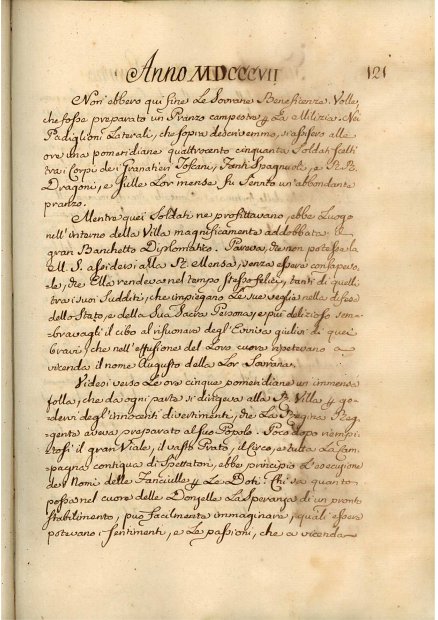 Anno MDCCCVII 121
Non ebbero qui fine Le Sovrane Beneficenze. Volle,
che fosse preparato un Pranzo campestre p La Milizia. Nei
Padiglioni Laterali, che sopra descrivemmo, s'assisero alle
ore una pomeridiane quattrocento cinquanta Soldati scelti
tra i Corpi de i Granatieri Toscani, Fanti Spagnuoli, e R. R.
Dragoni, e sulle Lor mense fu servito un'abbondante
pranzo.
Mentre quei Soldati ne profittavano, ebbe Luogo
nell'interno della Villa magnificamente addobbata il
gran Banchetto Diplomatico. Pareva, che non potesse la
M. S. assidersi alla R. Mensa, senza essere consapevo-
le, che Ella rendeva nel tempo stesso felici, tanti di quelli
tra i suoi Sudditi, che impiegano Le sue veglie nella difesa
dello Stato, e della Sua Sacra Persona, e più delizioso sem-
bravagli il cibo al risuonare degl'Evviva giulivi di quei
bravi, che nell'effusione del Loro cuore ripetevano a
vicenda il nome Augusto della Lor Sovrana.
Videsi verso Le ore cinque pomeridiane un immensa
folla, che da ogni parte si dirigeva alla R. Villa p go-
dervi degl'innocenti divertimenti, che La Regina Reg-
gente aveva preparato al suo Popolo. Poco dopo riempi-
tosi il gran Viale, il vasto Prato, il Circo, e tutta La Cam-
pagna contigua di Spettatori, ebbe principio L'esecuzione
de i Nomi delle Fanciulle p Le Doti. Chi sa quanto
possa nel cuore delle Donzelle La Speranza di un pronto
stabilimento, può facilmente immaginare, quali essere
potevano i sentimenti, e Le passioni, che a vicenda